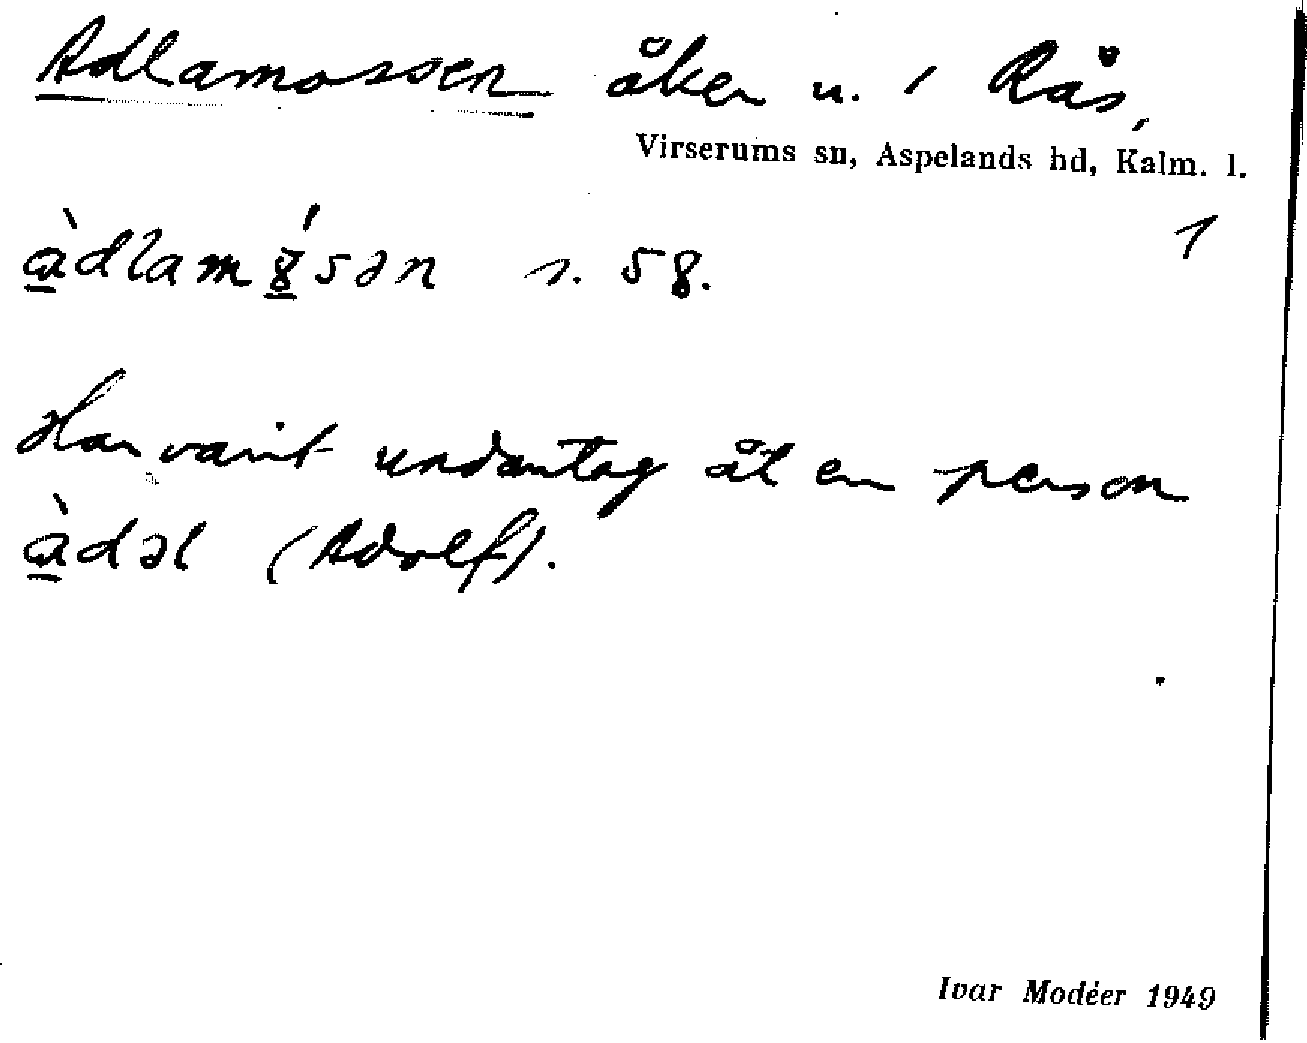 Adlamossen åker u. / Rås,
Virserums sn, Aspelands hd, Kalm. l.
1
àdlamɣ́sən s. 58.
Har varit undantag åt en person
àdəl (Adolf).
Ivar Modéer 1949